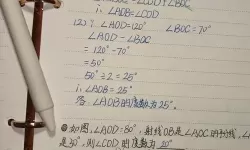 ∠BOC=∠COD+∠BOC
∴ ∠AOB=∠COD
(2) ∵ ∠AOD=120° ∠BOC=70°
∠AOD-∠BOC
=120°-70°
=50°
50°÷2=25°
∴ ∠AOB=25°
答:∠AOB的度数为25°。
如图,∠AOD=80°,射线OB是∠AOC的平分线,∠
是30°,则∠COD的度数为 20°